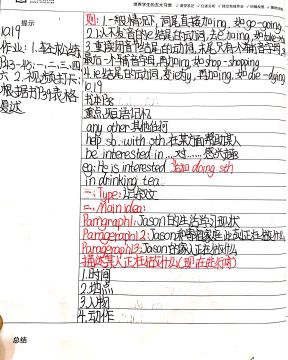 培养学生的五大习惯
提示
10.19
作业：1.轻松练
P43-45：一、二、三、四、
六 2.视频打卡：
根据书P 的表格
复述
则：1.一般情况下，词尾直接加ing，如go-going
2.以不发音的e结尾的动词，去e加ing，如
3.重读闭音节结尾的动词，末尾只有一个辅音字母，
双写最后一个辅音字母，再加ing，如shop-shopping
4.ie结尾的动词，变ie为y，再加ing，如die-dying
10.19
重点短语记忆
any other 其他任何
help sb. with sth. 在某方面帮助某人
be interested in ...对……感兴趣
eg: He is interested doing sth
in drinking tea.
一、Type：记叙文
二、Main idea：
Paragraph1：Jason的生活学习现状
Paragraph2：Jason和寄宿家庭此刻正在做什么
Paragraph3：Jason的家人正在做什么
描述某人正在做什么(现在进行时)
1.时间
2.地点
3.人物
4.动作
总结